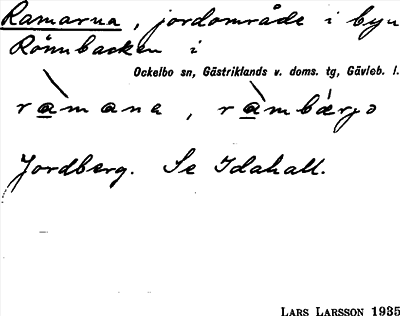 Ramarna, jordområde i byn
Rönnbacken i
Ockelbo sn, Gästriklands v. doms. tg, Gävleb. l.
ràmana, ràmbærjə
Jordberg. Se Idahall.
LARS LARSSON 1935